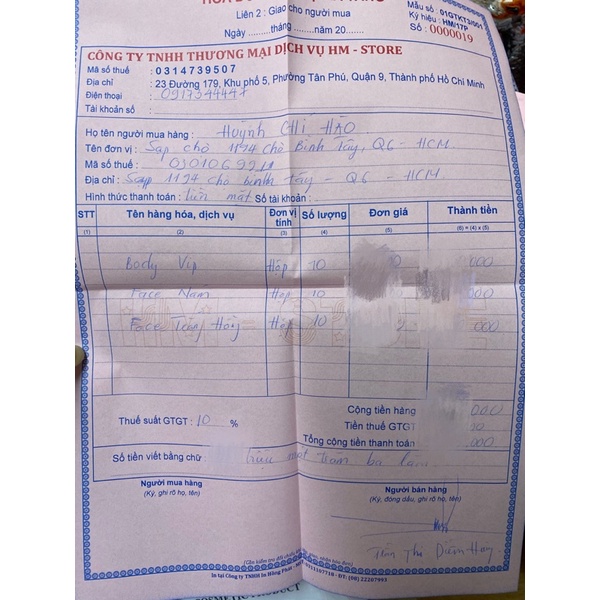 Liên 2 : Giao cho người mua
Mẫu số : 01GTKT3/001
Ký hiệu : HM/17P
Ngày.........tháng.........năm 20.......
Số : 0000019
CÔNG TY TNHH THƯƠNG MẠI DỊCH VỤ HM - STORE
Mã số thuế : 0314739507
Địa chỉ : 23 Đường 179, Khu phố 5, Phường Tân Phú, Quận 9, Thành phố Hồ Chí Minh
Điện thoại :
Tài khoản số :
Họ tên người mua hàng : Huỳnh Chí Hào
Tên đơn vị : Sạp chợ 1194 chợ Bình Tây, Q6 - HCM
Mã số thuế :
Địa chỉ : Sạp 1194 chợ bình tây - Q6 - HCM
Hình thức thanh toán : tiền mặt Số tài khoản :
STT Tên hàng hóa, dịch vụ Đơn vị tính Số lượng Đơn giá Thành tiền
(1) (2) (3) (4) (5) (6) = (4) x (5)
Body Vip Hộp 10 000
Face Nám Hộp 10 000
Face Trắng Hồng Hộp 10 000
Cộng tiền hàng 000
Thuế suất GTGT : 10 % Tiền thuế GTGT
Tổng cộng tiền thanh toán 000
Số tiền viết bằng chữ : triệu một trăm ba
Người mua hàng Người bán hàng
(Ký, ghi rõ họ, tên) (Ký, đóng dấu, ghi rõ họ, tên)
(Cần kiểm tra đối chiếu khi lập, giao, nhận hóa đơn)
In tại Công ty TNHH In Hồng Phát - ĐT: (08) 22207993